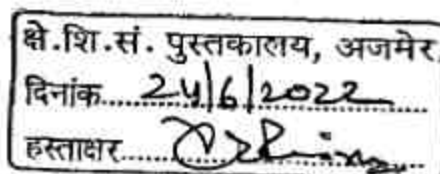 क्षे.शि.सं. पुस्तकालय, अजमेर
दिनांक.....24/6/2022
हस्ताक्षर.....